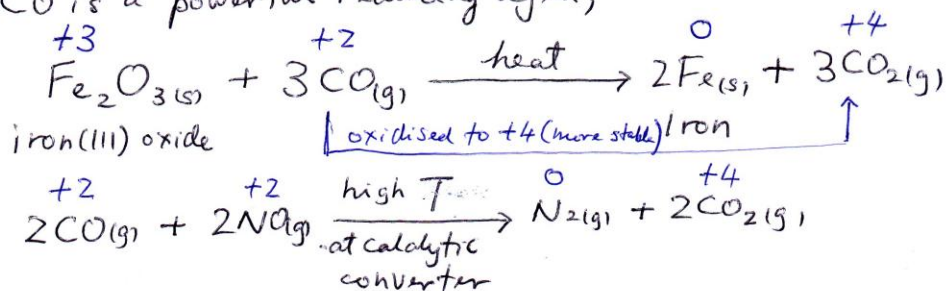 CO is a powerful reducing agent,
+3 +2 0 +4
Fe2O3(s) + 3CO(g) heat → 2Fe(s) + 3CO2(g)
iron(III) oxide oxidised to +4 (more stable) Iron
+2 +2 0 +4
2CO(g) + 2NO(g) high T → N2(g) + 2CO2(g)
at catalytic
converter